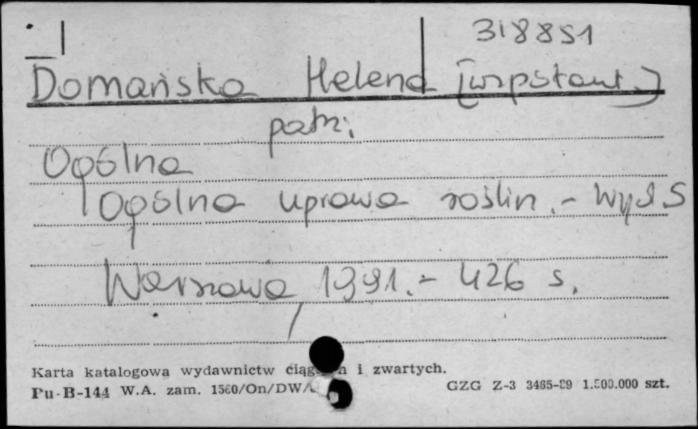 318851
Domańska Helena [współaut.]
patrz:
Ogólna
Ogólna uprawa roślin.- Wyd 5
Warszawa 1991.- 426 s.
Karta katalogowa wydawnictw i zwartych.
Pu-B-144 W.A. zam. 1560/On/DW/ GZG Z-3 3465-89 1.500.000 szt.